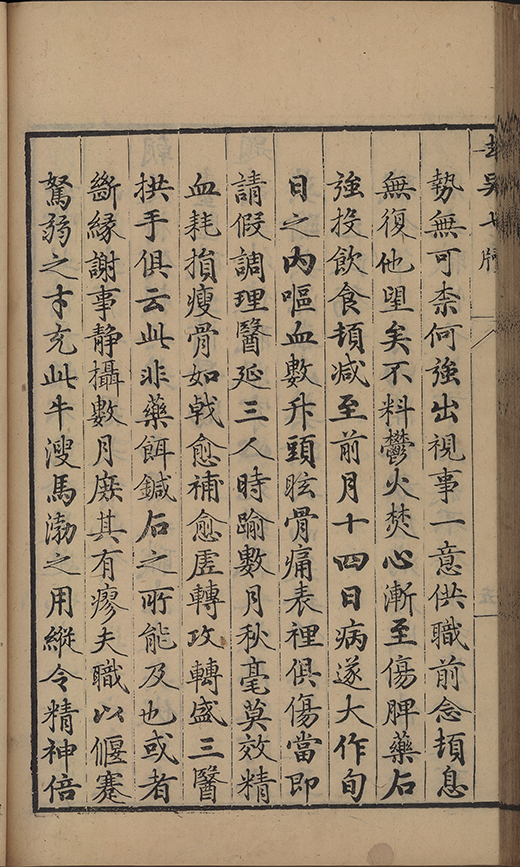 去吳七牘
勢無可柰何強出視事一意供職前念頓息
無復他望矣不料鬱火焚心漸至傷脾藥石
強投飲食頓减至前月十四日病遂大作旬
日之內嘔血數升頭眩骨痛表裡俱傷當即
請假調理醫延三人時踰數月秋毫莫效精
血耗損瘦骨如戟愈補愈虛轉攻轉盛三醫
拱手俱云此非藥餌鍼石之所能及也或者
斷緣謝事静攝數月庶其有瘳夫職以偃蹇
駑弱之才充此牛溲馬渤之用縱令精神倍